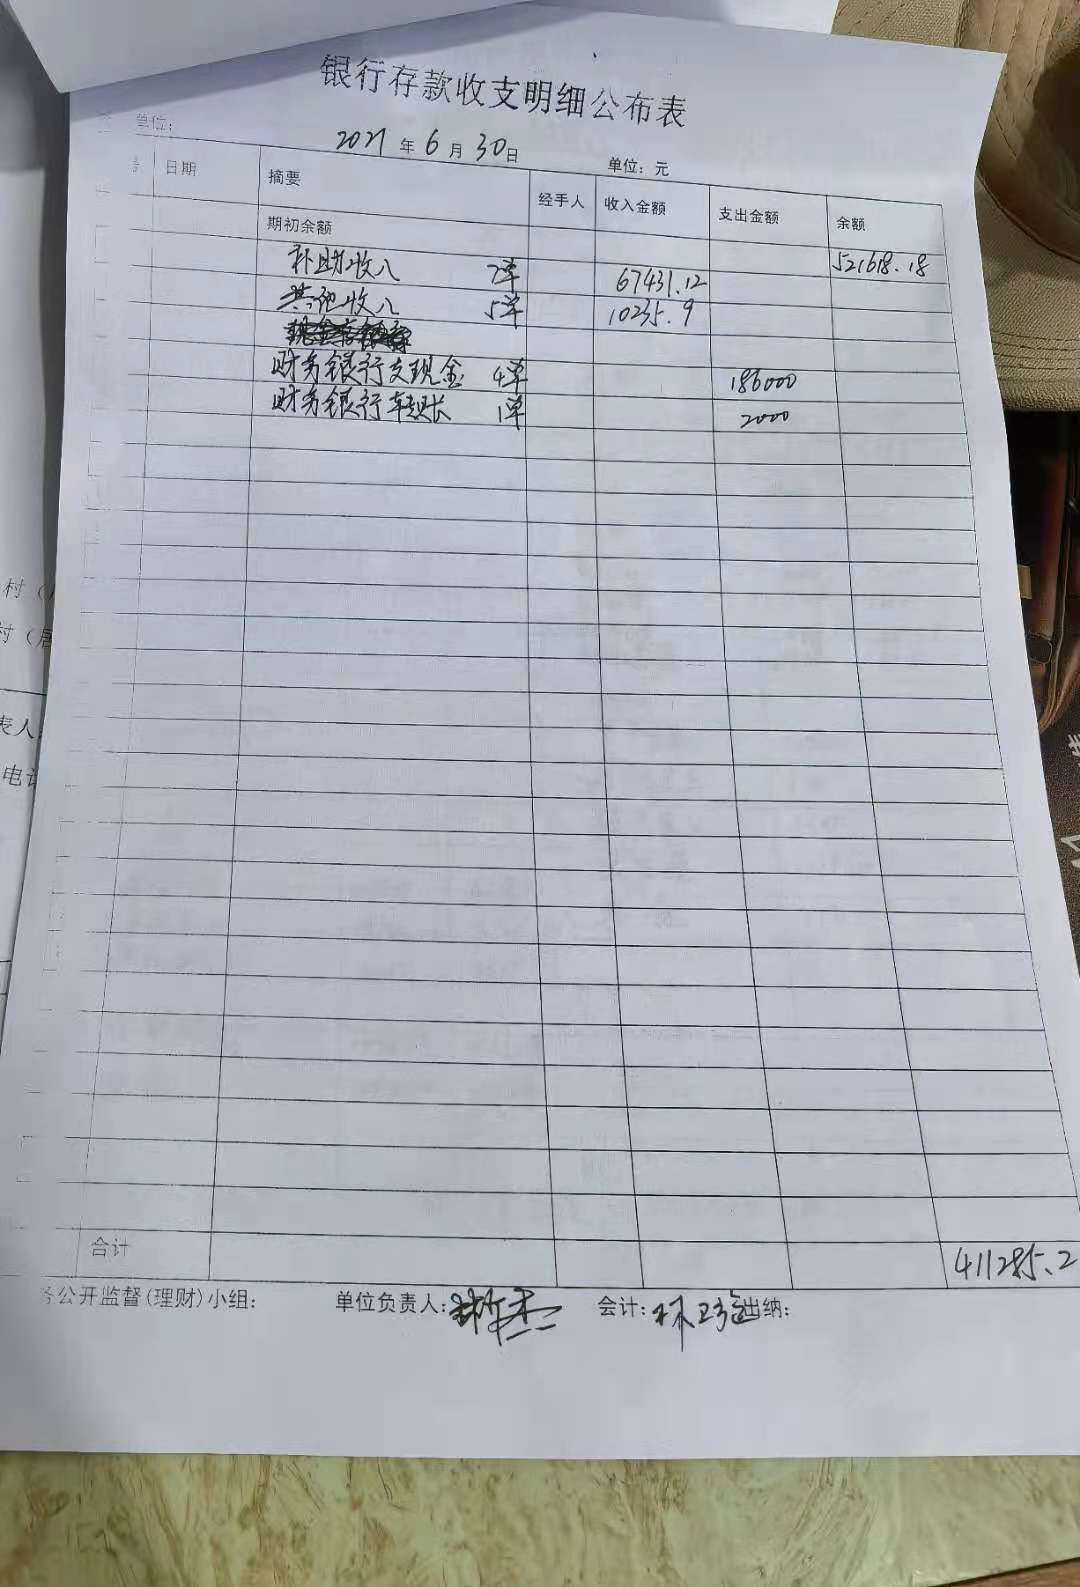 银行存款收支明细公布表
单位:
2021 年 6 月 30 日 单位：元
日期 摘要 经手人 收入金额 支出金额 余额
期初余额 521618.18
补助收入 7单 67431.12
其他收入 5单 10235.9
财务银行支现金 4单 186000
财务银行 1单 2000
合计 411285.2
务公开监督(理财)小组: 单位负责人: 会计: 出纳:
村（
村（居
表人
电话